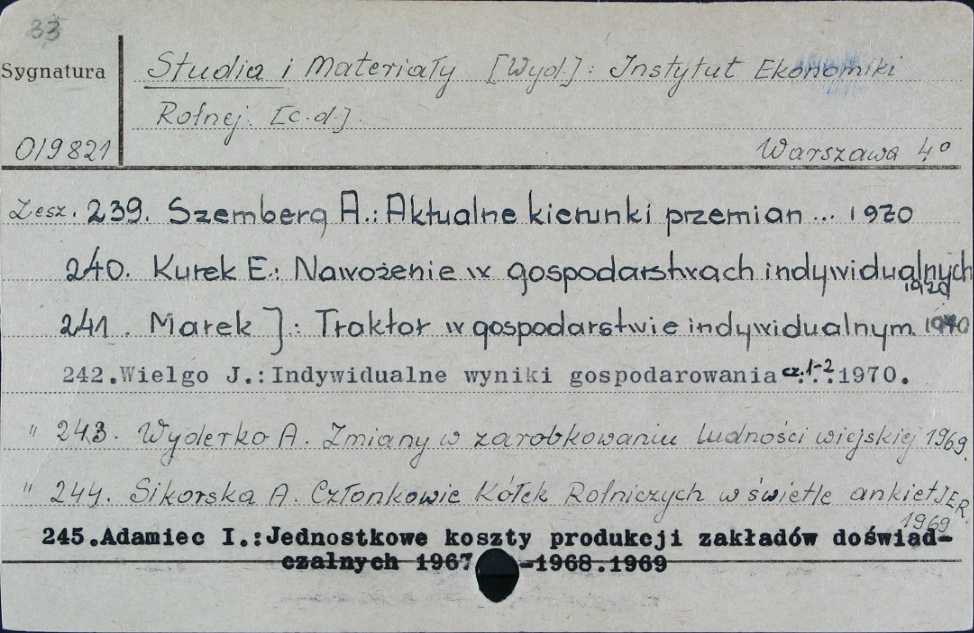 33
Sygnatura
Studia i Materiały [Wyd.]: Instytut Ekonomiki
Rolnej. [c.d.].
019821
Warszawa 4°
Zesz. 239. Szemberg A.: Aktualne kierunki przemian ... 1970
240. Kurek E.: Nawożenie w gospodarstwach indywidualnych
1970
241. Marek J.: Traktor w gospodarstwie indywidualnym 1970
242.Wielgo J.:Indywidualne wyniki gospodarowania cz.1-2.1970.
" 243. Wyderko A. Zmiany w zarobkowaniu ludności wiejskiej 1969.
" 244. Sikorska A. Członkowie Kółek Rolniczych w świetle ankiet JER
1969
245.Adamiec I.:Jednostkowe koszty produkcji zakładów doświad-
czalnych 1967 -1968.1969